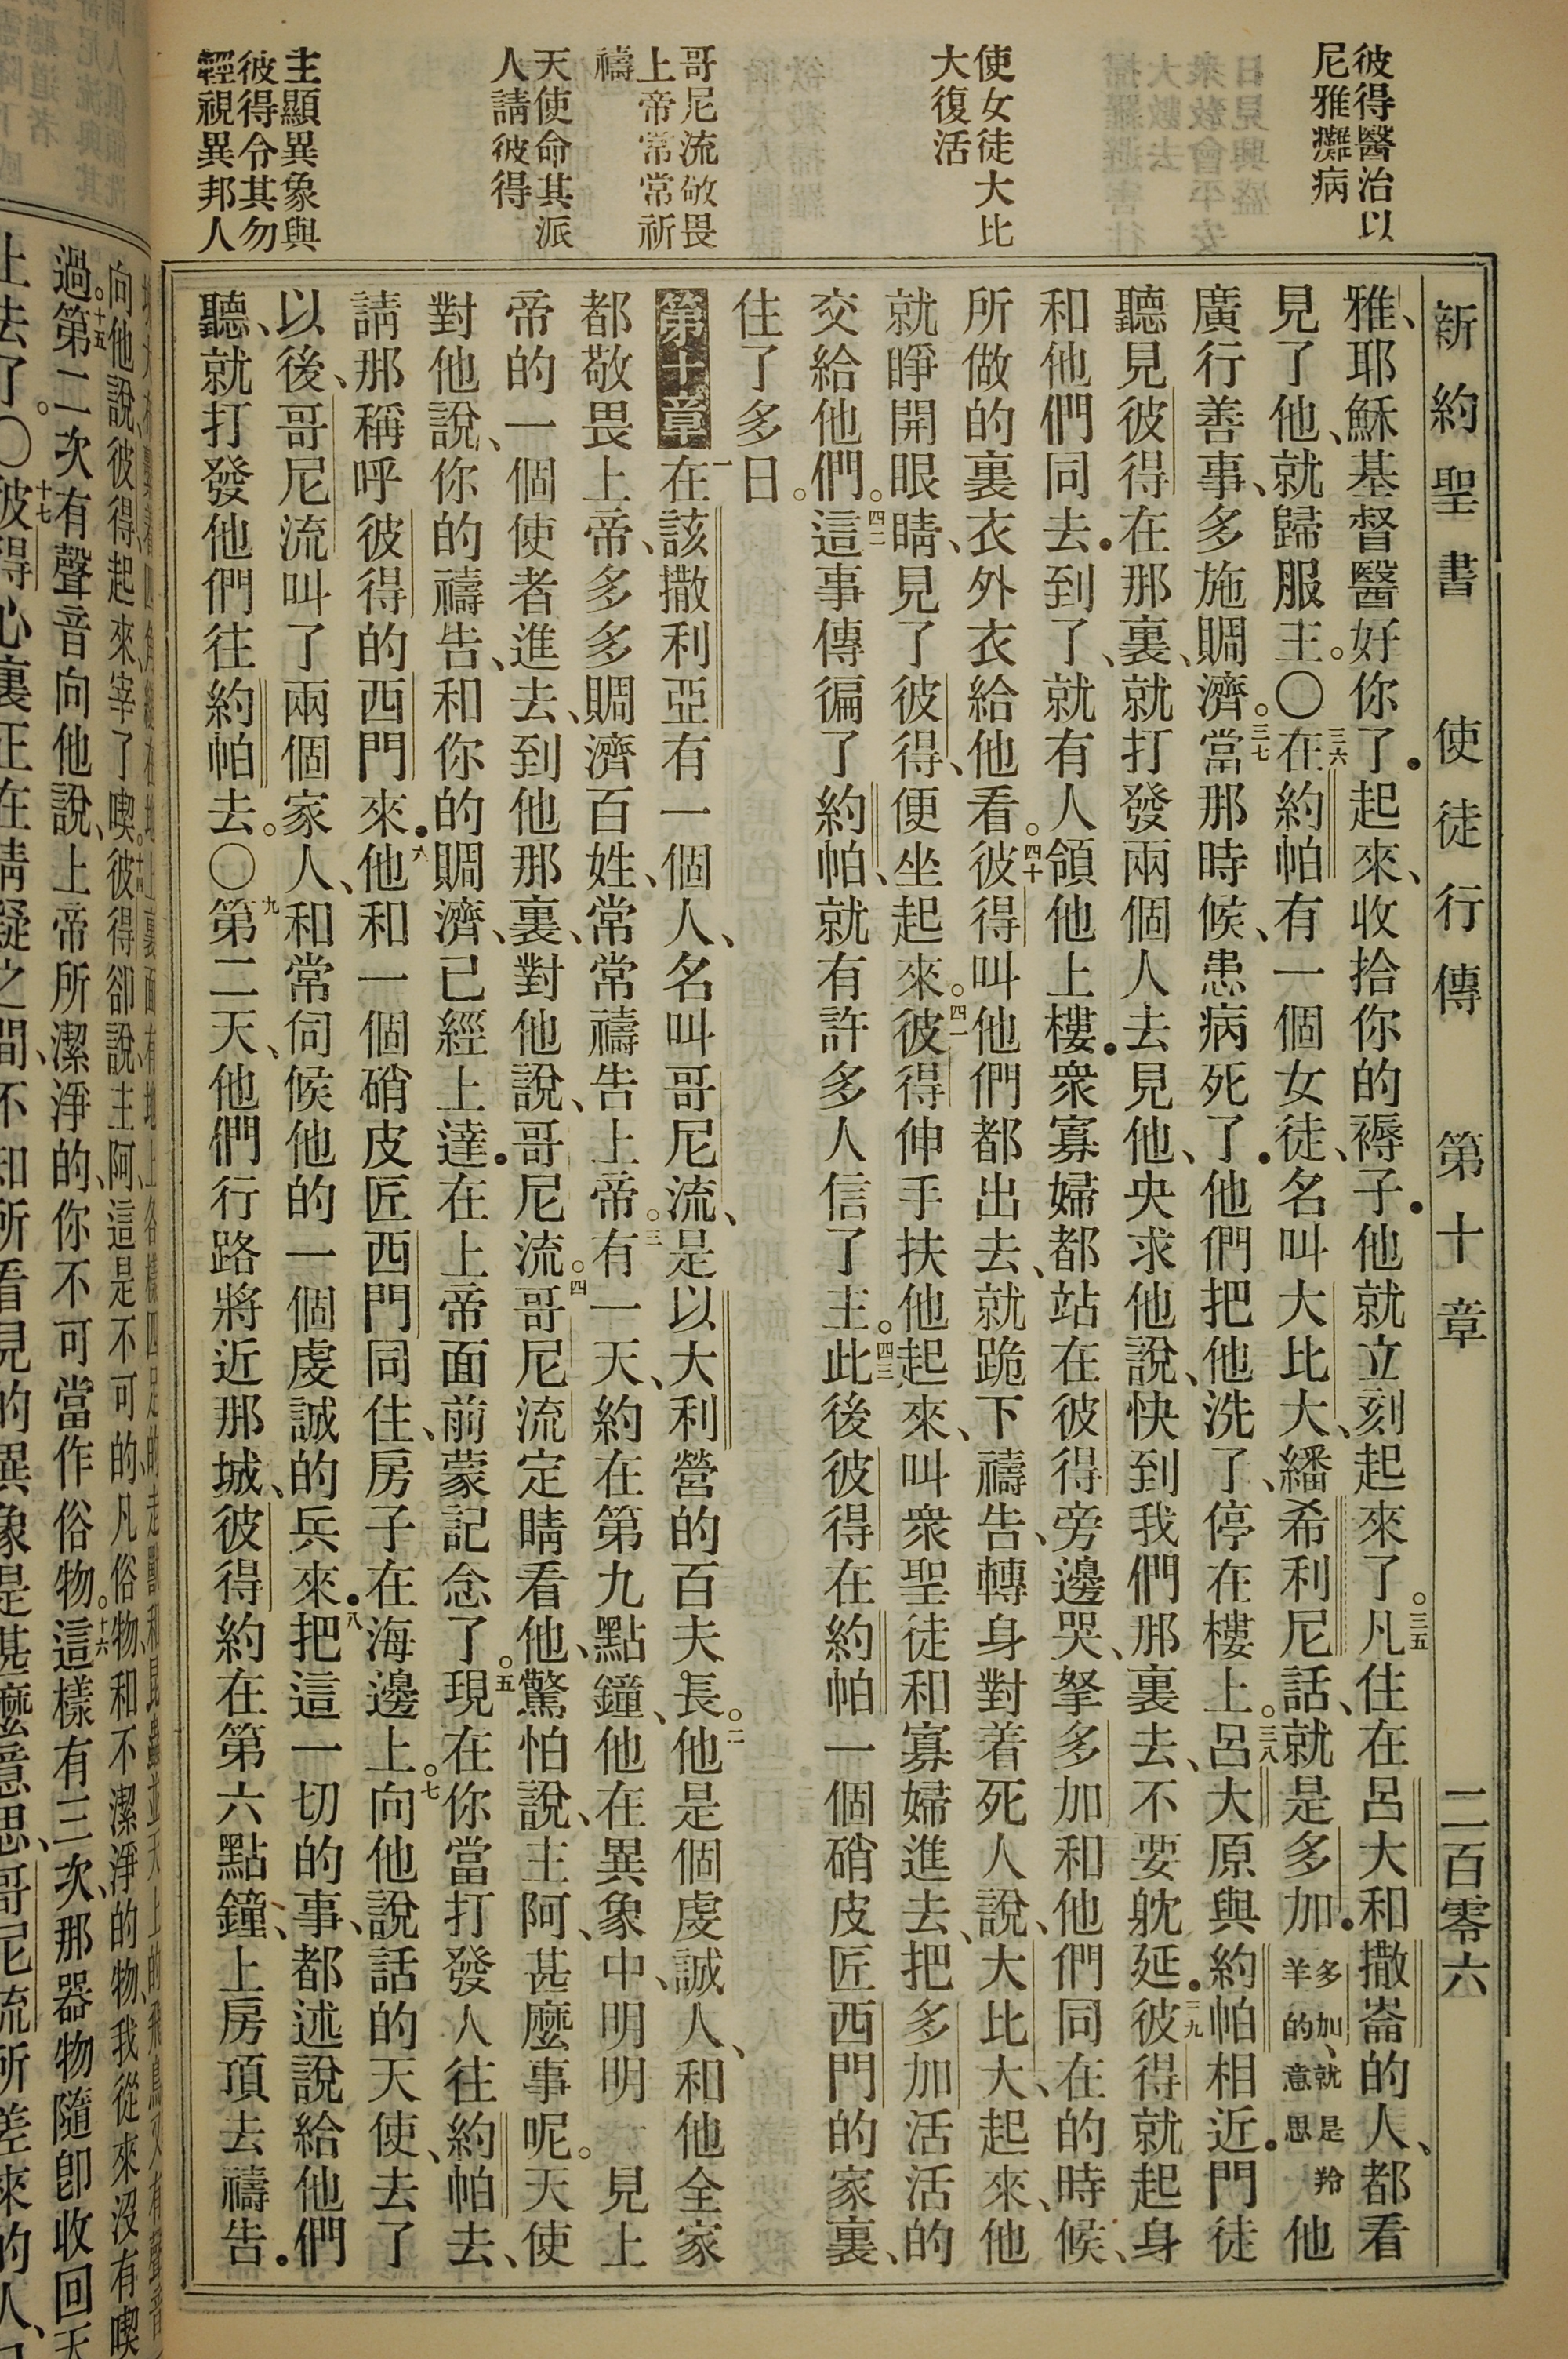 新約聖書 使徒行傳 第十章 二百零六
彼得醫治以
尼雅癱病
使女徒大比
大復活
哥尼流敬畏
上帝常常祈
禱
天使命其派
人請彼得
主顯異象與
彼得令其勿
輕視異邦人
雅、耶穌基督醫好你了．起來、收拾你的褥子．他就立刻起來了。三五凡住在呂大和撒崙的人、都看
見了他、就歸服主。〇三六在約帕有一個女徒、名叫大比大、繙希利尼話、就是多加．多加、就是羚羊的意思他
廣行善事、多施賙濟。三七當那時候、患病死了．他們把他洗了、停在樓上。三八呂大原與約帕相近．門徒
聽見彼得在那裏、就打發兩個人去見他、央求他說、快到我們那裏去、不要躭延．三九彼得就起身
和他們同去．到了、就有人領他上樓．衆寡婦都站在彼得旁邊哭、拏多加和他們同在的時候、
所做的裏衣外衣給他看。四十彼得叫他們都出去、就跪下禱告、轉身對着死人說、大比大、起來、他
就睜開眼睛、見了彼得、便坐起來。四一彼得伸手扶他起來、叫衆聖徒和寡婦進去、把多加活活的
交給他們。四二這事傳徧了約帕、就有許多人信了主。四三此後彼得在約帕一個硝皮匠西門的家裏、
住了多日。
第十章 一在該撒利亞有一個人、名叫哥尼流、是以大利營的百夫長。二他是個虔誠人、和他全家
都敬畏上帝、多多賙濟百姓、常常禱告上帝。三有一天、約在第九點鐘、他在異象中、明明見上
帝的一個使者進去、到他那裏、對他說、哥尼流。四哥尼流定睛看他、驚怕說、主阿、甚麼事呢。天使
對他說、你的禱告、和你的賙濟、已經上達．在上帝面前蒙記念了。五現在你當打發人往約帕去、
請那稱呼彼得的西門來．六他和一個硝皮匠西門同住、房子在海邊上。七向他說話的天使、去了
以後、哥尼流叫了兩個家人、和常伺候他的一個虔誠的兵來．八把這一切的事、都述說給他們
聽、就打發他們往約帕去。〇九第二天、他們行路將近那城、彼得約在第六點鐘、上房頂去禱告．
向他說、彼得、起來、宰了喫。十四彼得卻說、主阿、這是不可的、凡俗物、和不潔淨的物、我從來沒有喫
過。十五第二次有聲音向他說、上帝所潔淨的、你不可當作俗物。十六這樣有三次、那器物隨卽收回天
上去了。〇十七彼得心裏正在猜疑之間、不知所看見的異象是甚麼意思、哥尼流所差來的人、